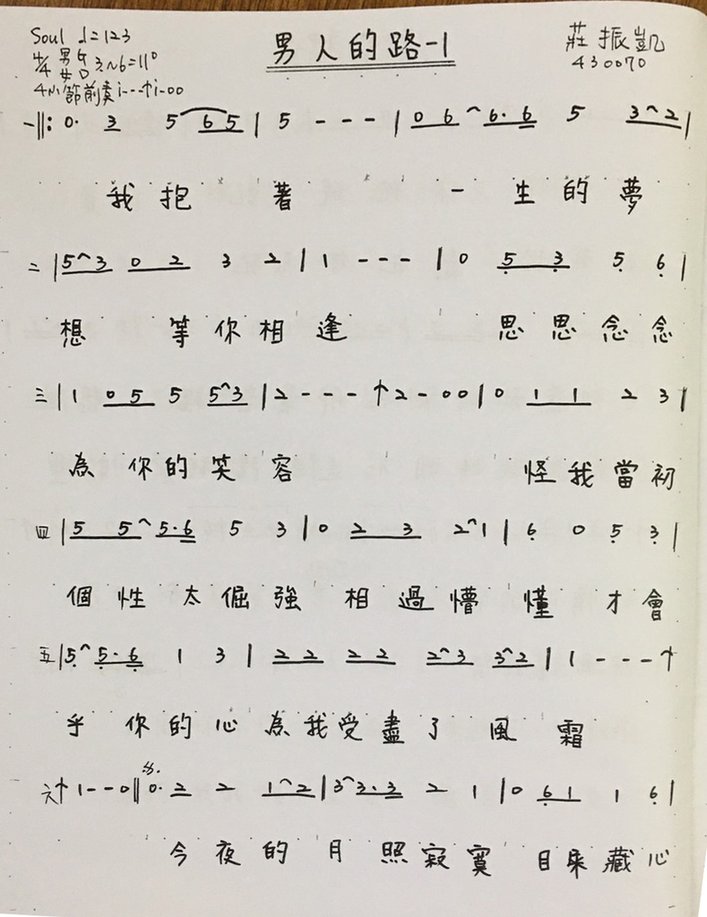 男人的路-1
莊振凱
430070
Soul ♩=123
4/4 男G 女C 3~6=11°
4小節前奏 i---↑i-00
一 ‖: 0· 3 5 65 | 5 - - - | 0 6^6·6 5 3^2 |
我抱著 一生的夢
二 | 5^3 0 2 3 2 | 1 - - - | 0 5̣ 3̣ 5̣ 6̣ |
想 等你相逢 思思念念
三 | 1 0 5 5 5^3 | 2 - - - ↑ 2 - 0 0 | 0 1 1 2 3 |
為你的笑容 怪我當初
四 | 5 5^5·6 5 3 | 0 2 3 2^1 | 6̣ 0 5̣ 3̣ |
個性太倔強 相過懵懂 才會
五 | 5̣^5̣·6̣ 1 3 | 2 2 2 2 2^3 3^2 | 1 - - - ↑
乎你的心為我受盡了風霜
六 ↑ 1 - - 0 ‖ 0· 2 2 1^2 | 3^3·3 2 1 | 0 6̣ 1 1 6̣ |
今夜的月照寂寞 目屎藏心